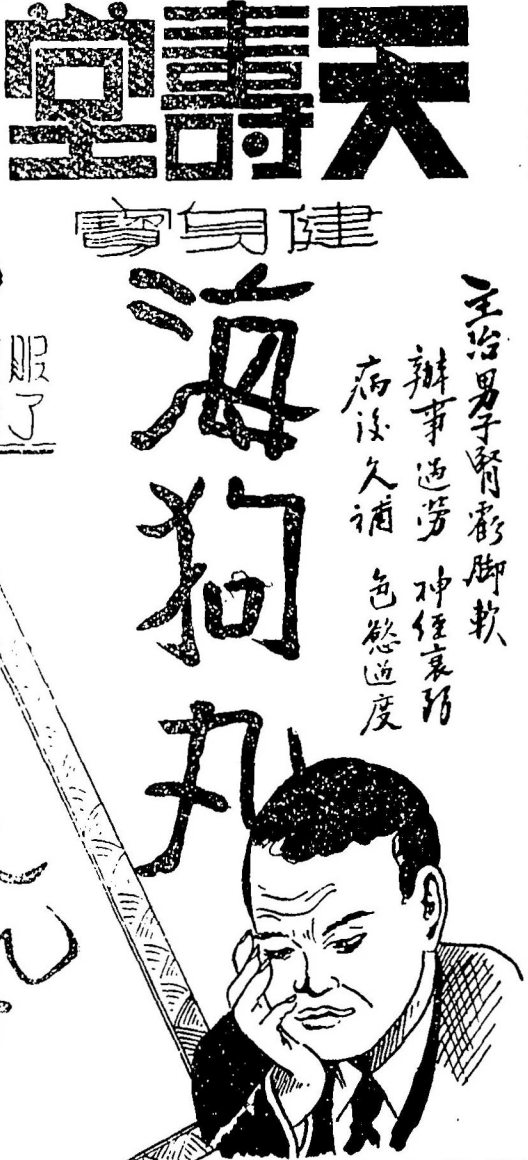 天壽堂
健身寶
主治男子腎虧脚軟
辦事過勞 神經衰弱
病後久補 色慾過度
海狗丸
服了